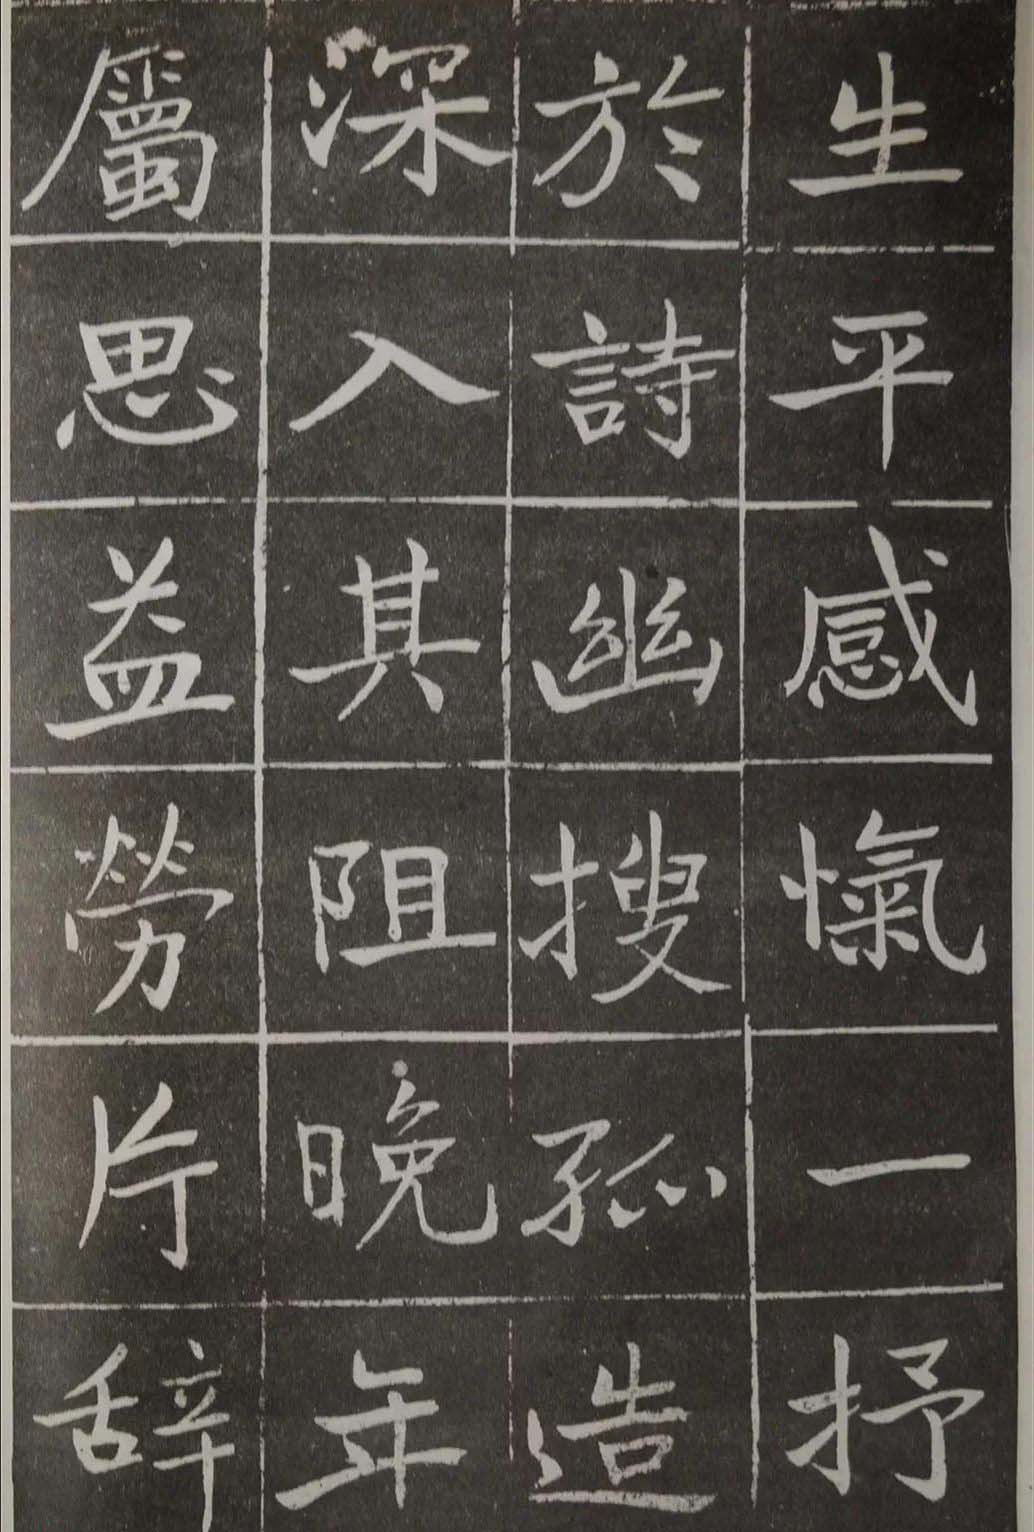 生平感愾一抒
於詩幽搜孤造
深入其阻晚年
屬思益勞片辞